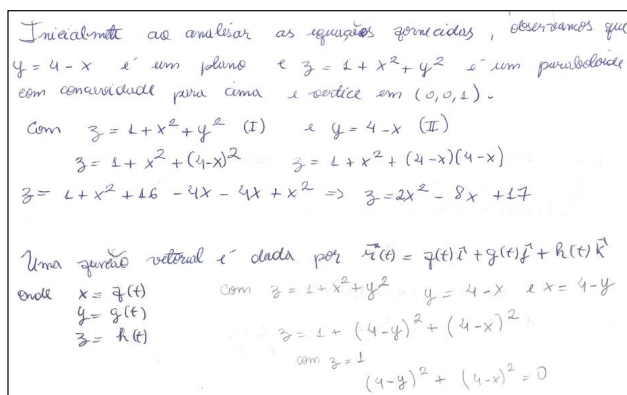 Inicialmente ao analisar as equações fornecidas, observamos que
y = 4 - x é um plano e z = 1 + x² + y² é um paraboloide
com concavidade para cima e vertice em (0,0,1).
Com z = 1 + x² + y² (I) e y = 4 - x (II)
z = 1 + x² + (4-x)² z = 1 + x² + (4-x)(4-x)
z = 1 + x² + 16 - 4x - 4x + x² => z = 2x² - 8x + 17
Uma função vetorial é dada por r⃗(t) = f(t)i⃗ + g(t)j⃗ + h(t)k⃗
onde x = f(t) com z = 1 + x² + y² y = 4 - x e x = 4 - y
y = g(t)
z = 1 + (4-y)² + (4-x)²
z = h(t)
com z = 1
(4-y)² + (4-x)² = 0